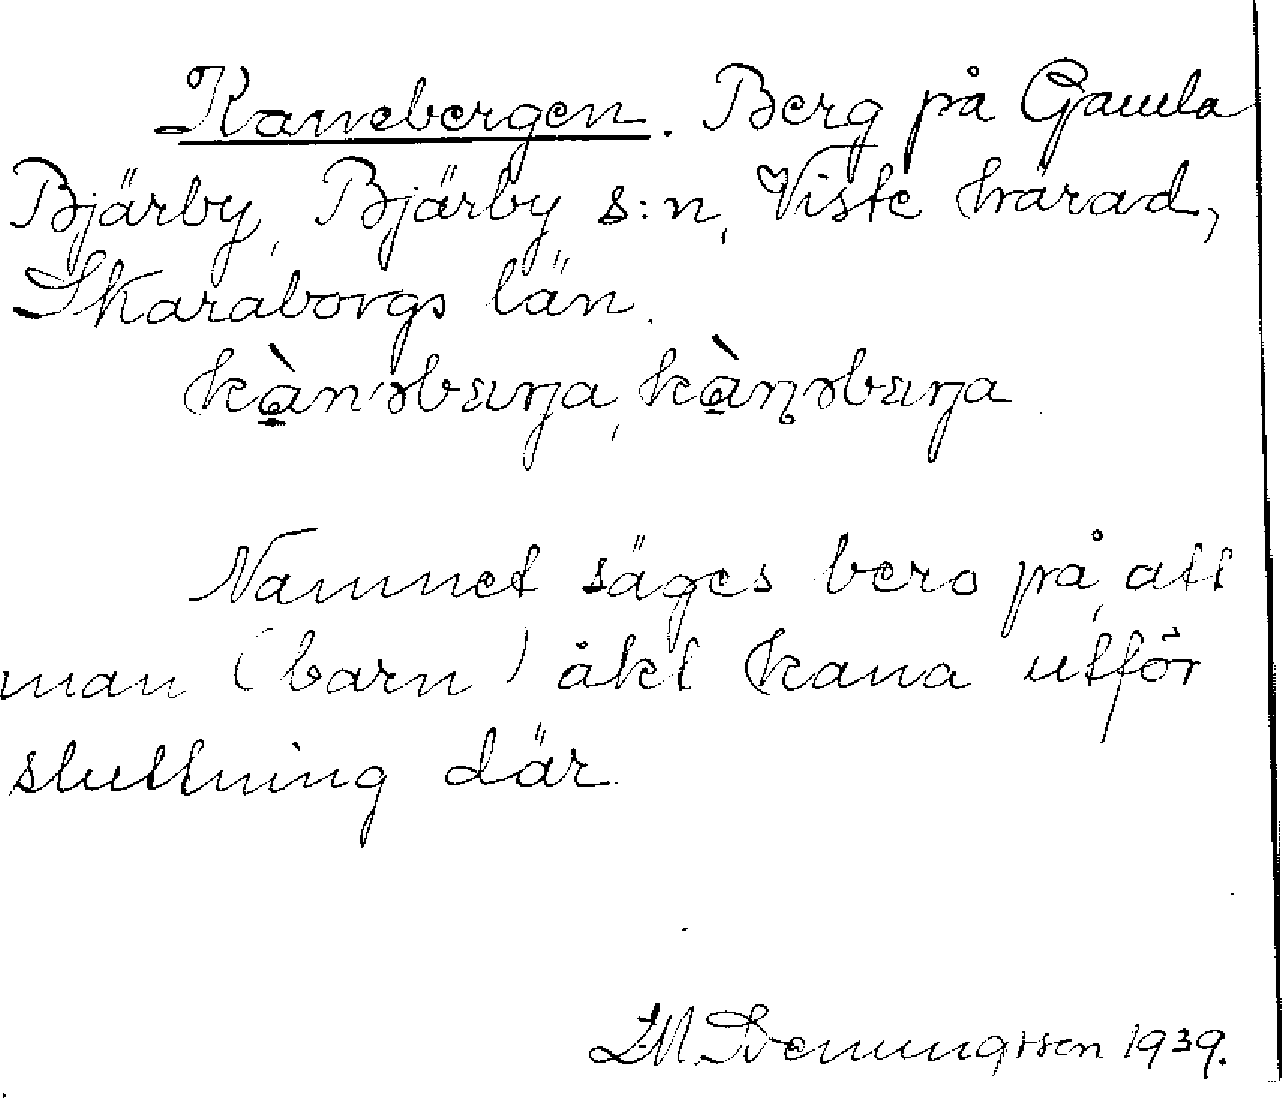 Kanebergen. Berg på Gamla
Bjärby, Bjärby s:n, Viste härad,
Skaraborgs län.
kànəbærja, kàṇəbærja
Namnet säges bero på, att
man (barn) åkt kana utför
sluttning där.
1939.